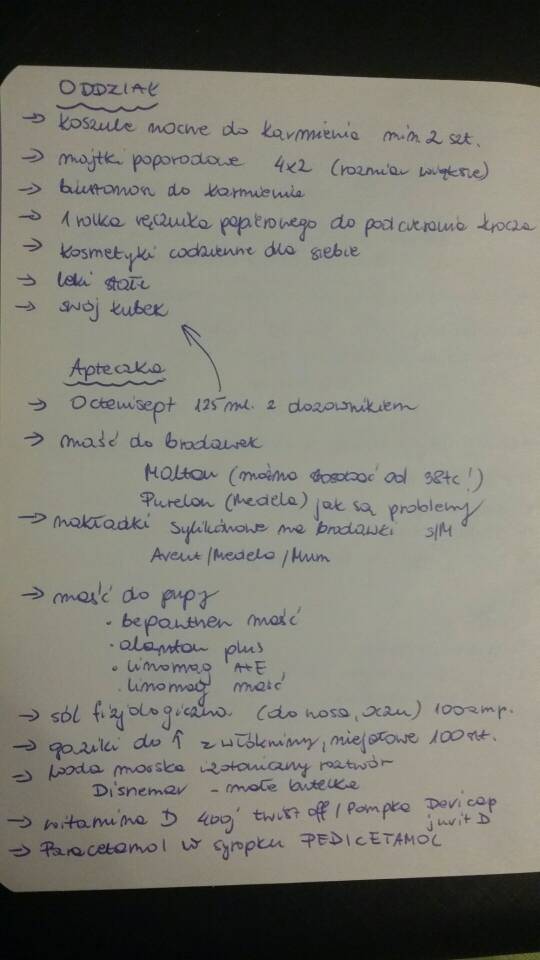 ODDZIAŁ
→ koszule nocne do karmienia min 2 szt.
→ majtki poporodowe 4x2 (rozmiar większe)
→ biustonosz do karmienia
→ 1 rolka ręcznika papierowego do podcierania krocza
→ kosmetyki codzienne dla siebie
→ leki stałe
→ swój kubek
Apteczka
→ Octenisept 125 ml. z dozownikiem
→ maść do brodawek
Maltan (można stosować od 38tc!)
Purelan (Medela) jak są problemy
→ nakładki sylikonowe na brodawki S/M
Avent/Medela/Mum
→ maść do pupy
• bepanthen maść
• alantan plus
• linomag A+E
• linomag maść
→ sól fizjologiczna (do nosa, oczu) 100 amp.
→ gaziki do ↑ z włókniny, niejałowe 100 szt.
→ woda morska izotoniczny roztwór
Disnemar - mała butelka
→ witamina D 400j twist off / Pompka Devicap
juvit D
→ Paracetamol w syropku PEDICETAMOL